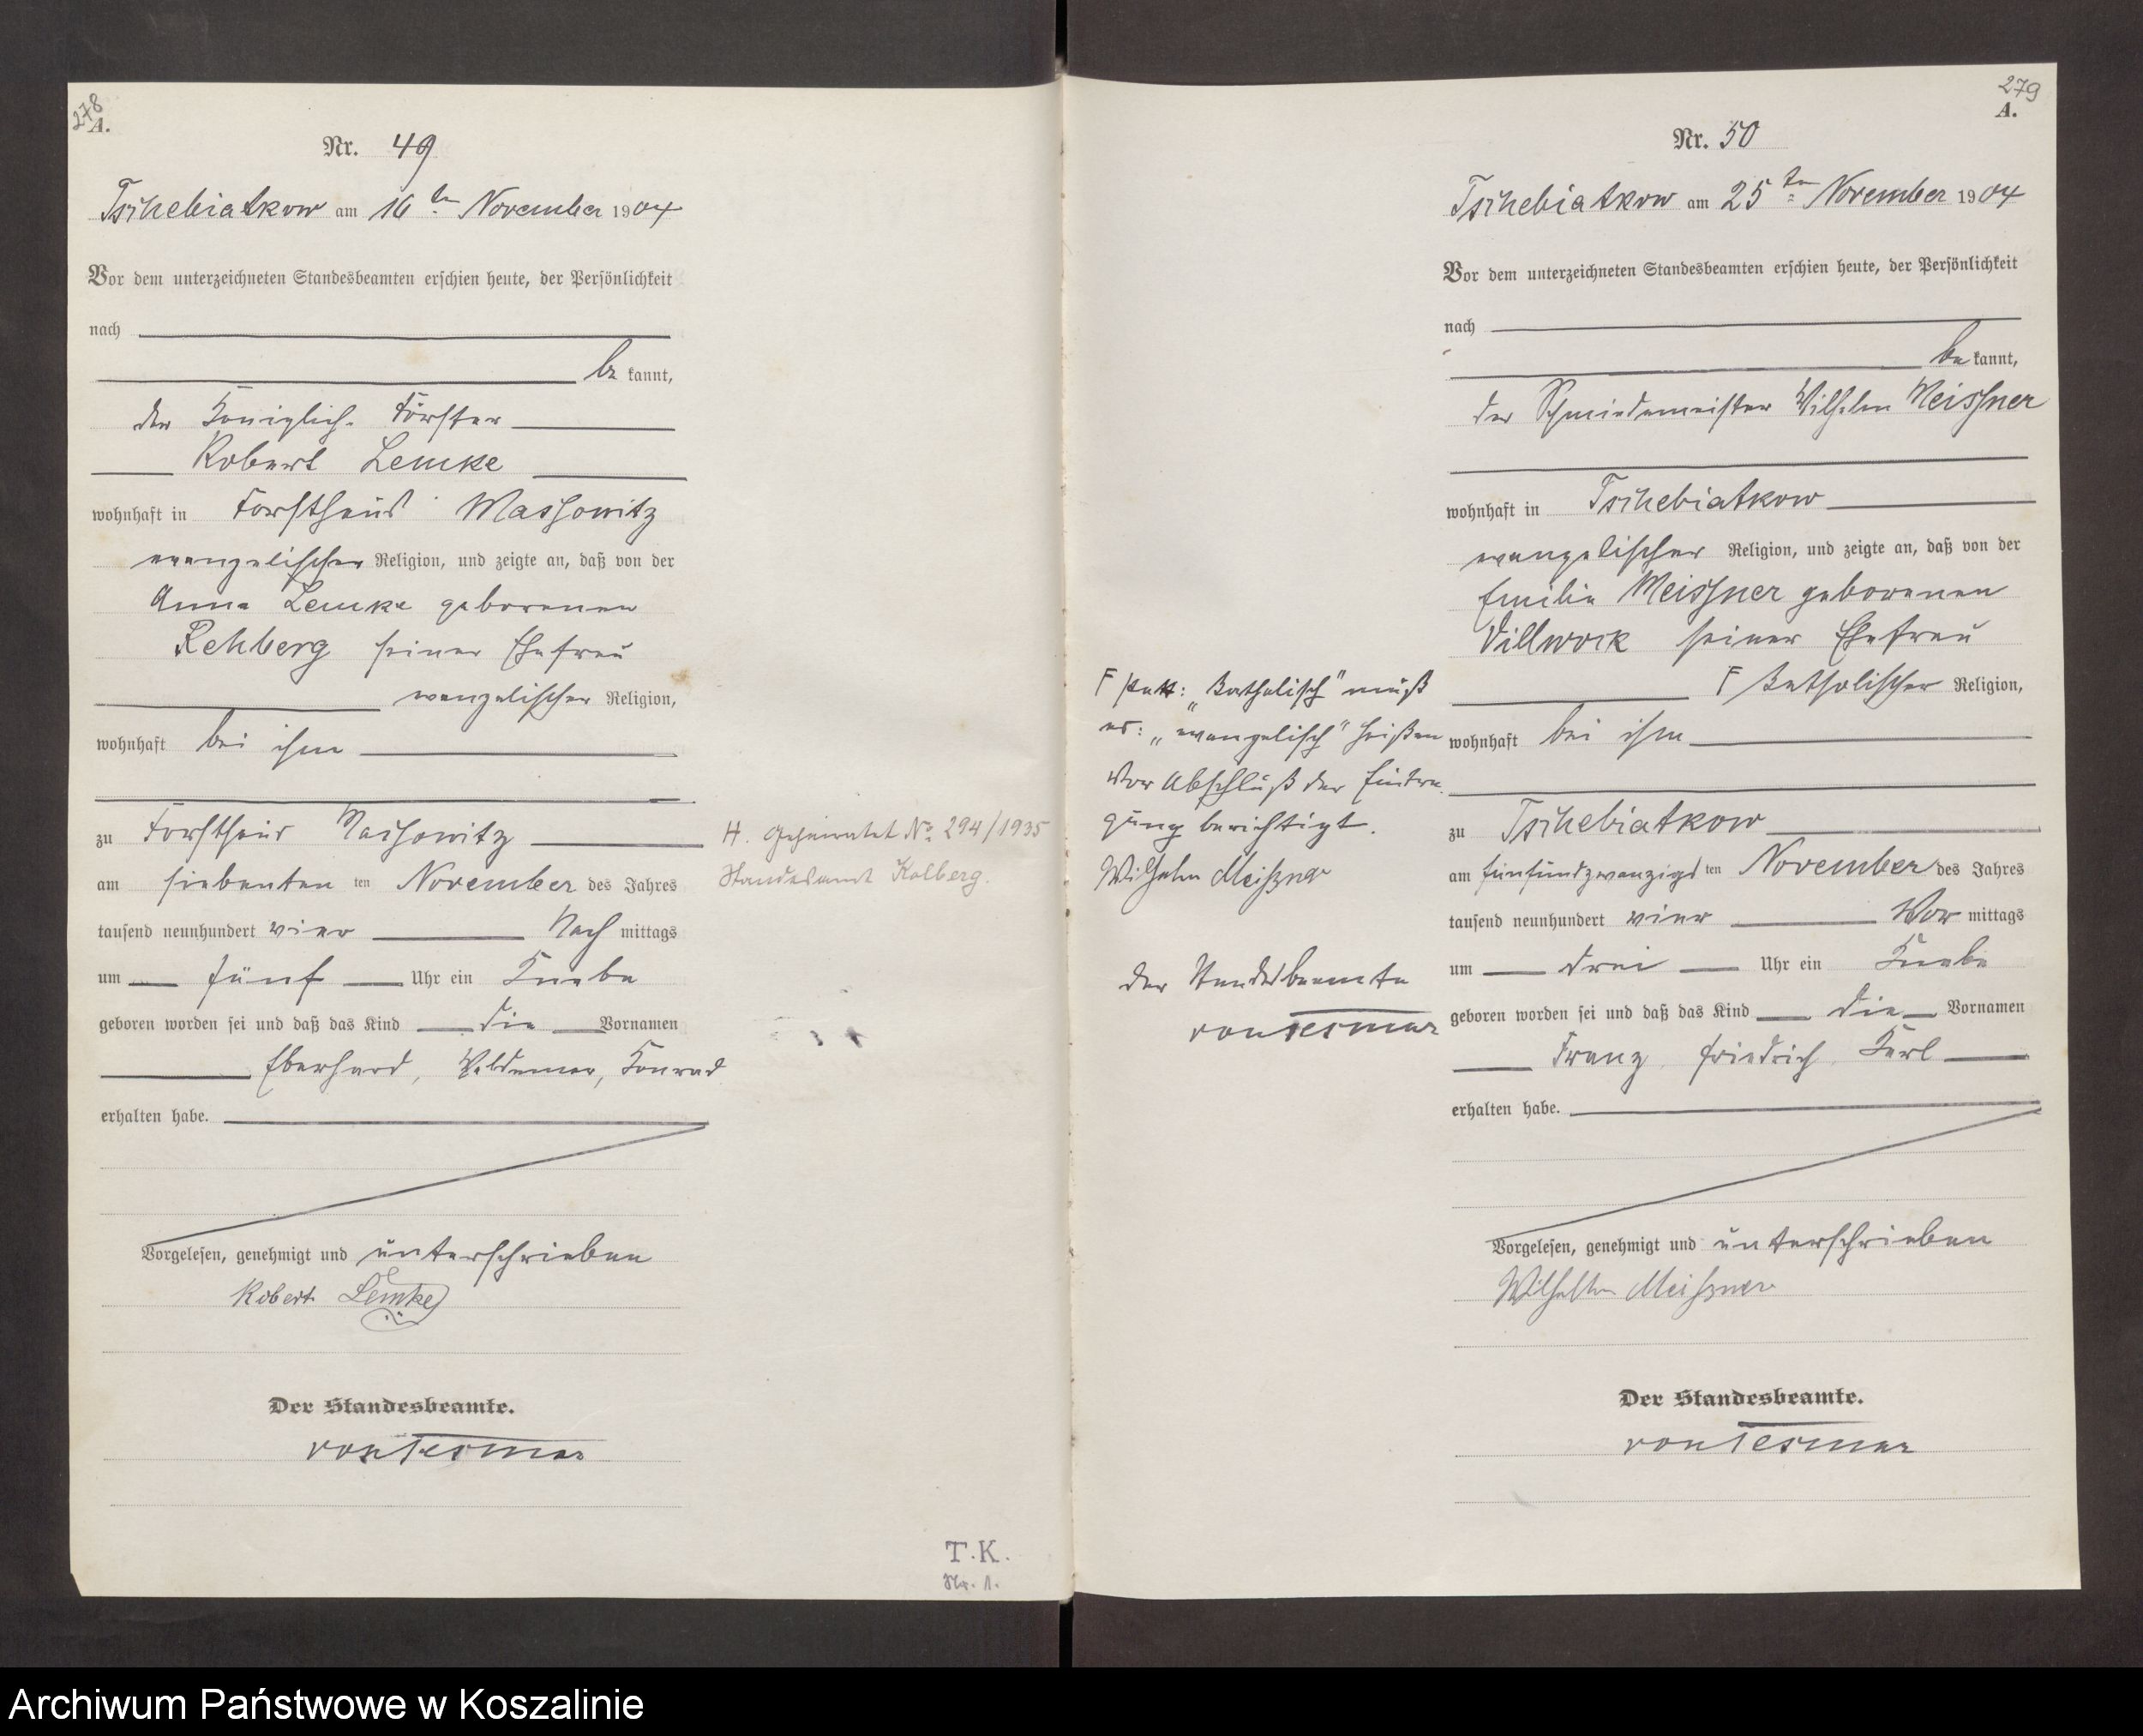 278
A.
Nr. 49
Tschebiatkow am 16ten November 1904
Vor dem unterzeichneten Standesbeamten erschien heute, der Persönlichkeit
nach
be kannt,
der Königlich. Förster
Robert Lemke
wohnhaft in Forsthaus Massowitz
evangelischer Religion, und zeigte an, daß von der
Anna Lemke geborenen
Rehberg seiner Ehefrau
evangelischer Religion,
wohnhaft bei ihm
zu Forsthaus Massowitz
am siebenten ten November des Jahres
tausend neunhundert vier Nach mittags
um fünf Uhr ein Knabe
geboren worden sei und daß das Kind die Vornamen
Eberhard, Waldemar, Konrad
erhalten habe.
Vorgelesen, genehmigt und unterschrieben
Robert Lemke
Der Standesbeamte.
von Tesmar
H. Geheiratet No. 294/1935
Standesamt Kolberg.
T.K.
Nr. 1.
279
A.
Nr. 50
Tschebiatkow am 25ten November 1904
Vor dem unterzeichneten Standesbeamten erschien heute, der Persönlichkeit
nach
be kannt,
der Schmiedemeister Wilhelm Meissner
wohnhaft in Tschebiatkow
evangelischer Religion, und zeigte an, daß von der
Emilie Meissner geborenen
Villwock seiner Ehefrau
F katholischer Religion,
wohnhaft bei ihm
zu Tschebiatkow
am fünfundzwanzigs ten November des Jahres
tausend neunhundert vier Vor mittags
um drei Uhr ein Knabe
geboren worden sei und daß das Kind die Vornamen
Franz Friedrich Karl
erhalten habe.
Vorgelesen, genehmigt und unterschrieben
Wilhelm Meißner
Der Standesbeamte.
von Tesmar
F statt: „katholisch" muß
es: „evangelisch" heißen
Vor Abschluß der Eintra-
gung berichtigt.
Wilhelm Meißner
Der Standesbeamte
von Tesmar
Archiwum Państwowe w Koszalinie